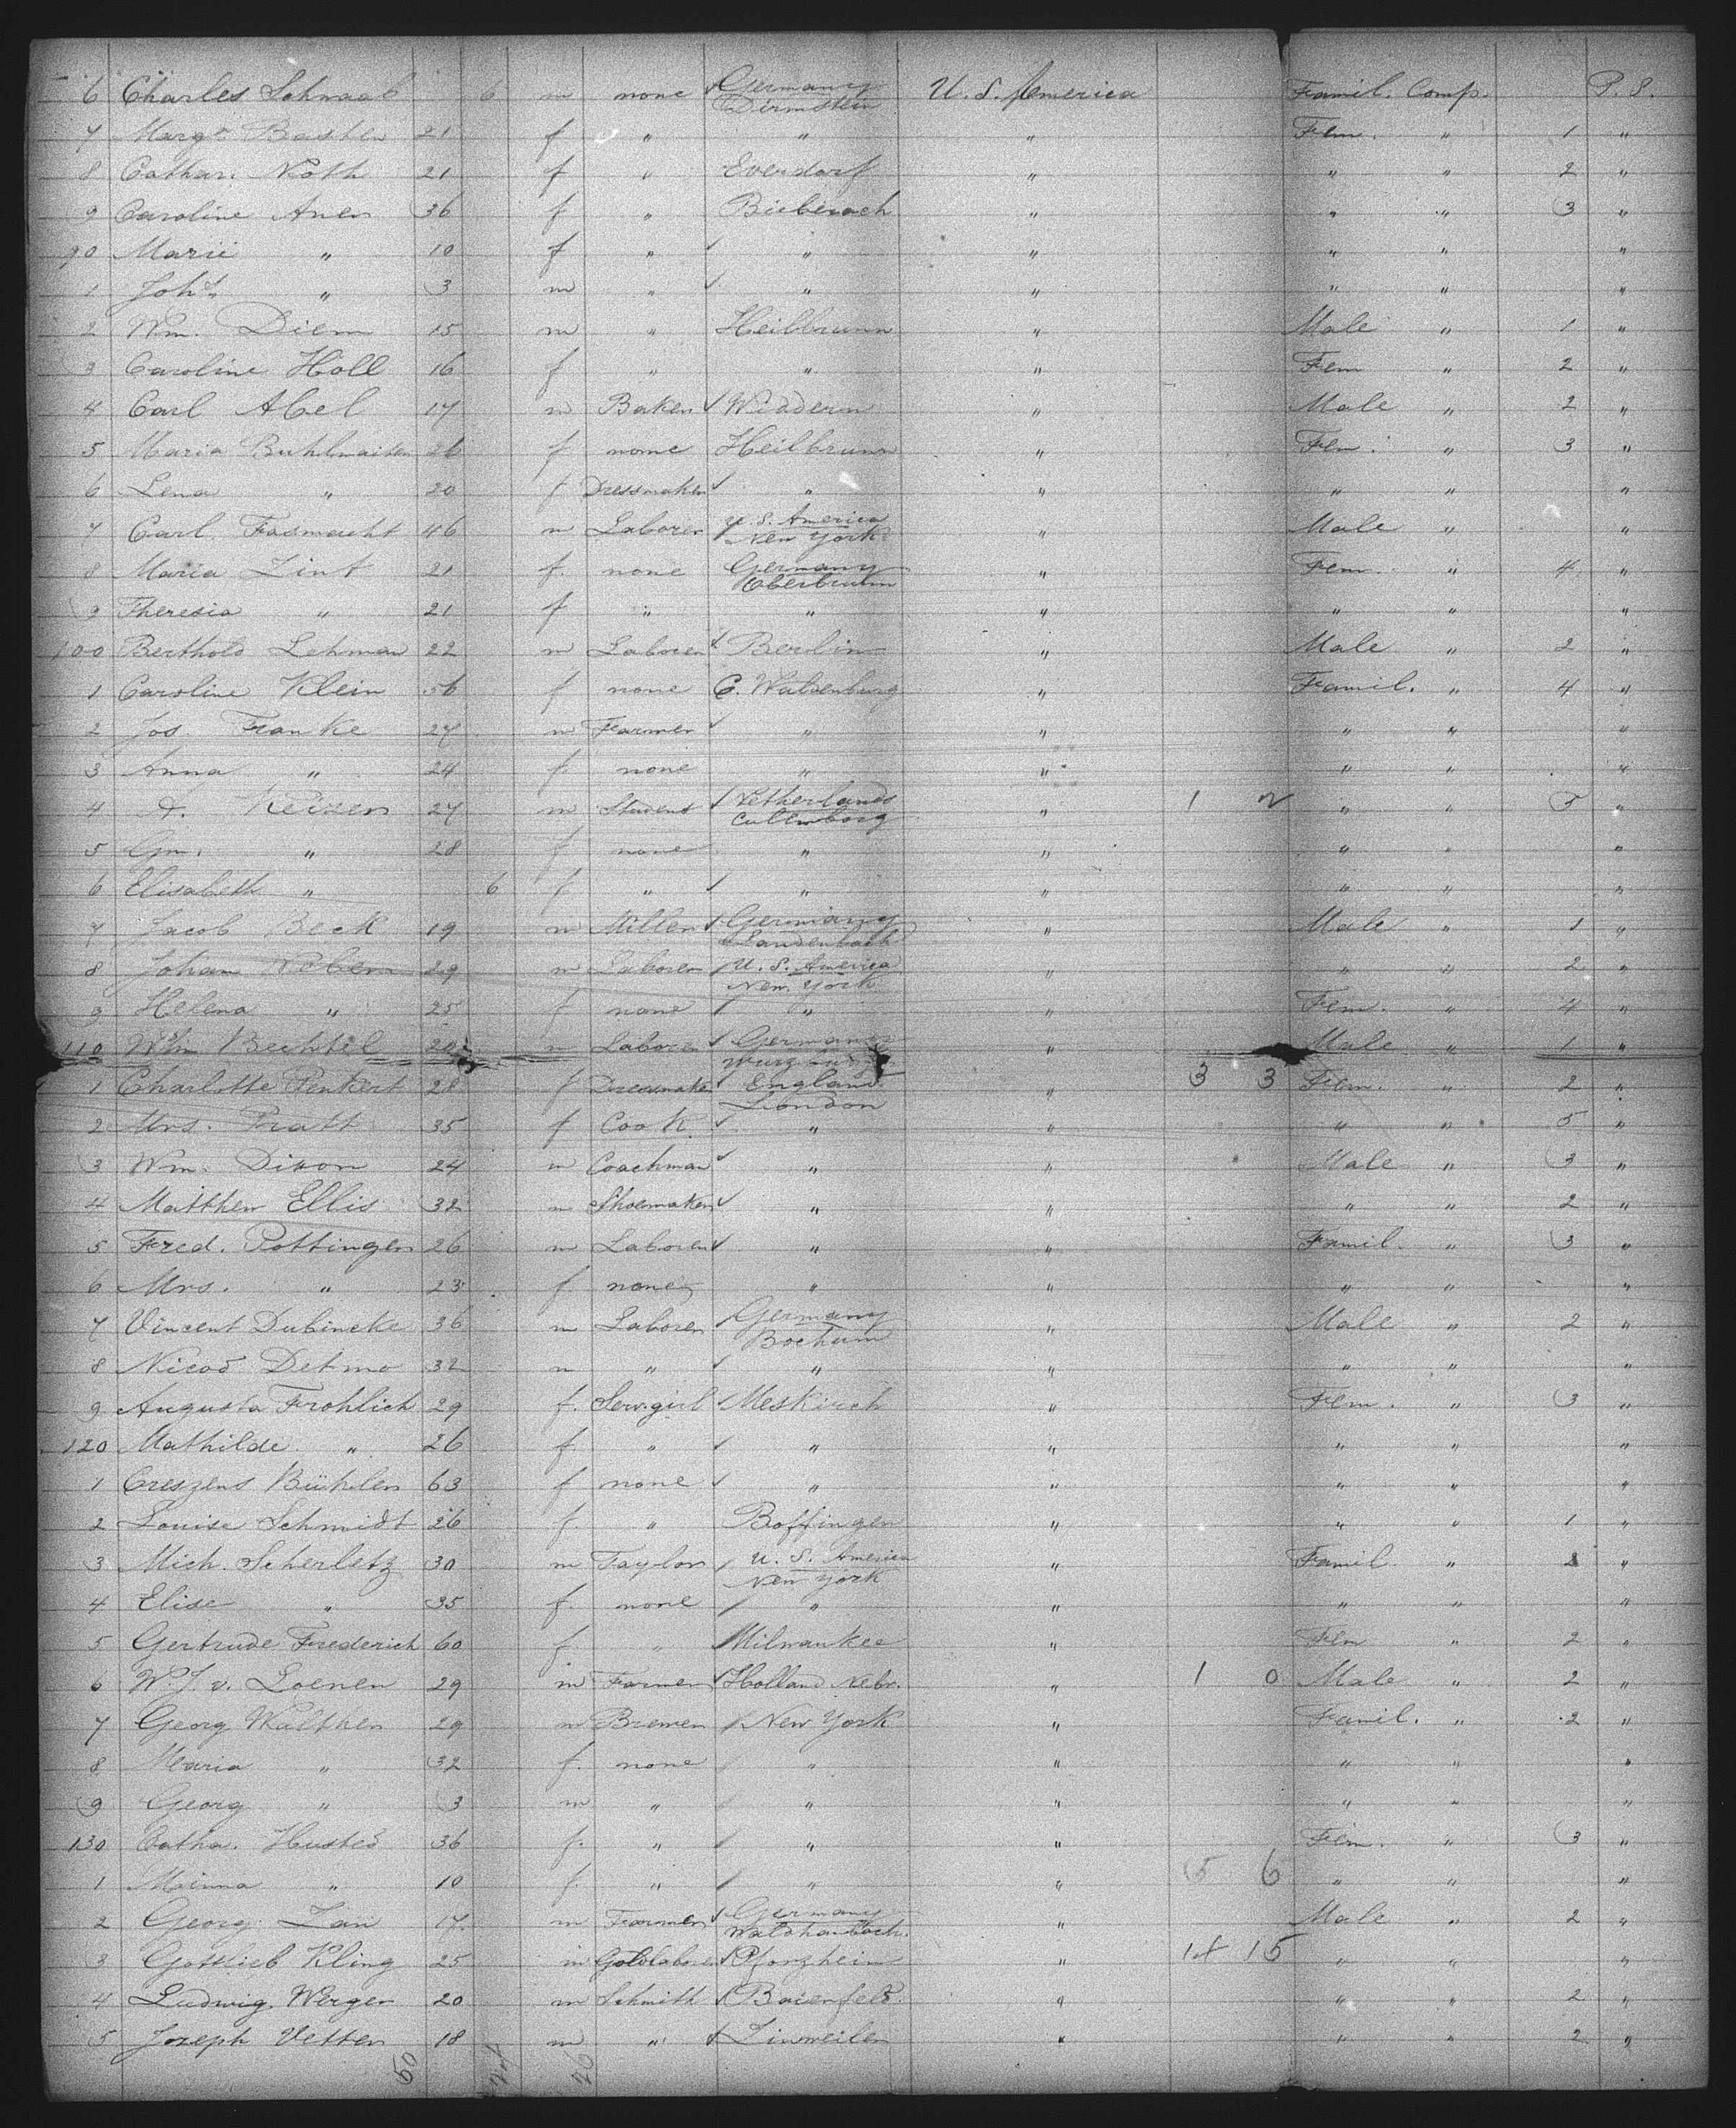 6 Charles Schwaab 6 m none Germany Dirmstein U. S. America Famil. Comp. P. S.
7 Margr. Basler 21 f " " " Fem. " 1 "
8 Cathar. Noth 21 f " Everdorf " " " 2 "
9 Caroline Auer 36 f " Bieberach " " " 3 "
90 Marie " 10 f " " " " " "
1 Johs. " 3 m " " " " " "
2 Wm. Diem 15 m " Heilbrunn " Male " 1 "
3 Caroline Holl 16 f " " " Fem " 2 "
4 Carl Abel 17 m Baker Widdern " Male " 2 "
5 Maria 26 f none Heilbrunn " Fem. " 3 "
6 Lena " 20 f Dressmaker " " " " "
7 Carl Fasnacht 46 m Laborer U. S. America New York " Male " "
8 Maria Zint 21 f. none Germany Oberbrunn " Fem. " 4 "
9 Theresia " 21 f " " " " " "
100 Berthold Lehman 22 m Laborer Berlin " Male " 2 "
1 Caroline Klein 56 f none C. Waldenburg " Famil. " 4 "
2 Jos Franke 27 m Farmer " " " " "
3 Anna " 24 f. none " " " " "
4 A. Keizer 27 m Student Netherlands Culemborg " 1 2 " " 5 "
5 Gm. " 28 f none " " " " "
6 Elisabeth " 6 f " " " " " "
7 Jacob Beck 19 m Miller Germany Laudenbach " Male " 1 "
8 Johan 29 m Laborer U. S. America New York " " " 2 "
9 Helena " 25 f none " " Fem. " 4 "
110 Wm Bechtel 20 m Laborer Germany " Male " 1 "
1 Charlotte Penkert 28 f Dressmaker England London " 3 3 Fem. " 2 "
2 Mrs. Pratt 35 f Cook " " " " 5 "
3 Wm. Dixon 24 m Coachman " " Male " 3 "
4 Matthew Ellis 32 m Shoemaker " " " " 2 "
5 Fred. Pottinger 26 m Laborer " " Famil. " 3 "
6 Mrs. " 23 f. none " " " " "
7 Vincent Dubincke 36 m Laborer Germany Bochum " Male " 2 "
8 Nicod Detmo 32 m " " " " " "
9 Augusta Frohlich 29 f. Serv.girl Meskirch " Fem. " 3 "
120 Mathilde " 26 f. " " " " " "
1 Creszens Bühler 63 f none " " " " "
2 Louise Schmidt 26 f. " Boffingen " " " 1 "
3 Mich. Scherletz 30 m Taylor U. S. America New York " Famil. " 2 "
4 Elise " 35 f. none " " " " "
5 Gertrude Frederich 60 f. " Milwaukee " Fem " 2 "
6 W. J. v. Loenen 29 m Farmer Holland Nebr. " 1 0 Male " 2 "
7 Georg Walther 29 m Brewer New York " Famil. " 2 "
8 Maria " 32 f. none " " " " "
9 Georg " 3 m " " " " " "
130 Catha. Husted 36 f. " " " Fem. " 3 "
1 Minna " 10 f. " " " 5 6 " " "
2 Georg Zan 17 m Farmer Germany " Male " 2 "
3 Gottlieb Kling 25 m Goldlaborer Pforzheim " 15 " " "
4 Ludwig Werger 20 m Schmith Baienfeld " " " 2 "
5 Joseph Vetter 18 m " Linweiler " " " 2 "
50